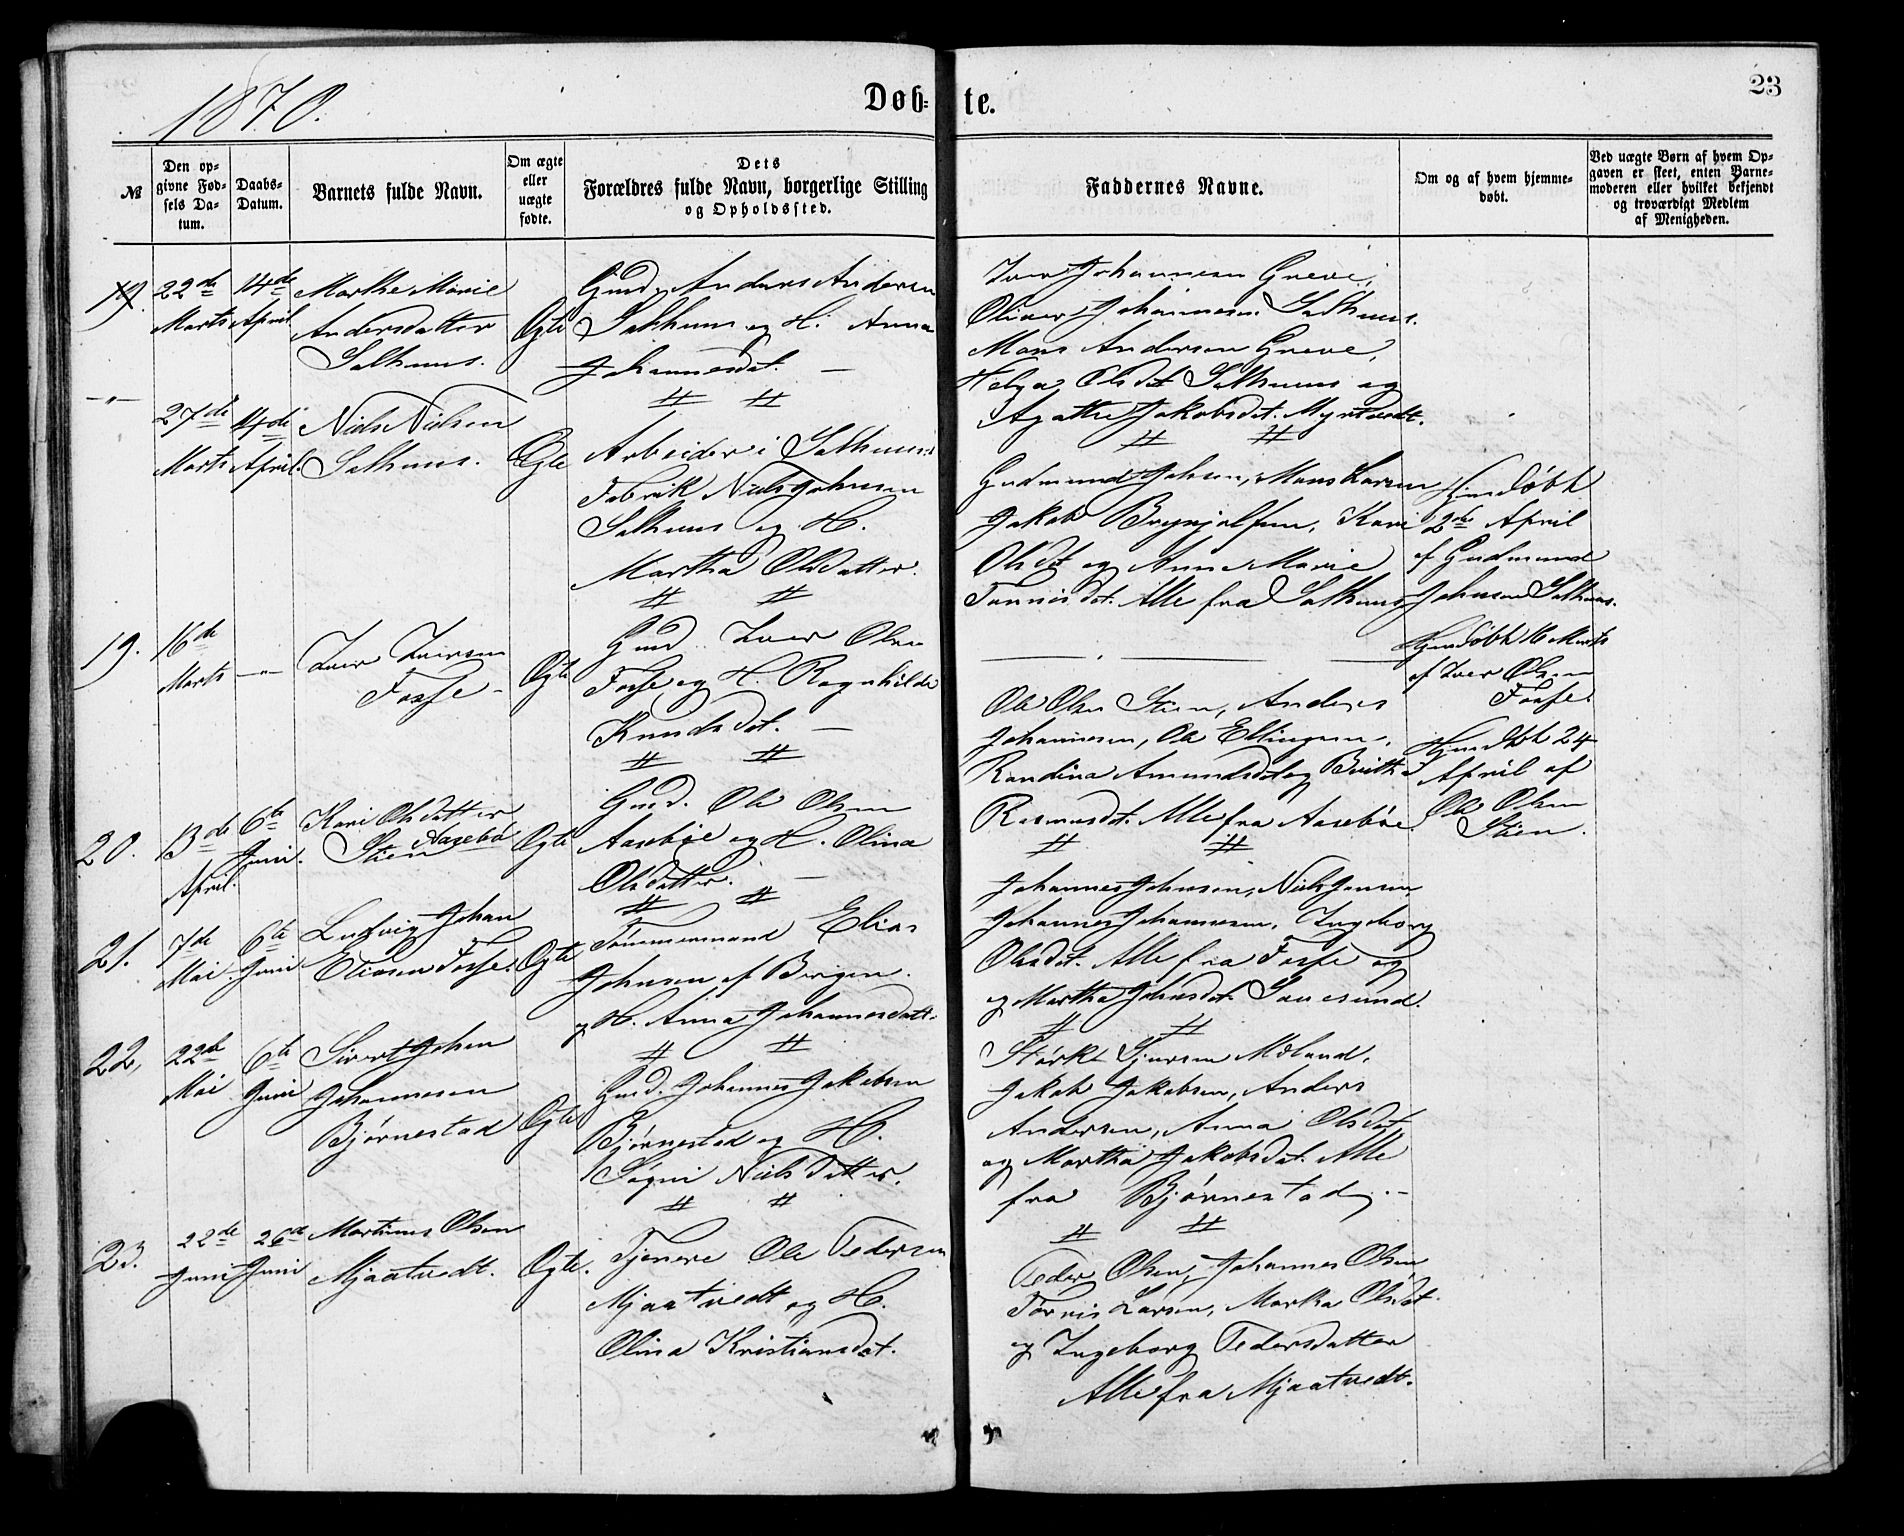 1870.
Døb=
te.
23
№
Den op=
givne Fød=
sels Da=
tum.
Daabs=
Datum.
Barnets fulde Navn.
Om ægte
eller
uægte
fødte.
Dets
Forældres fulde Navn, borgerlige Stilling
og Opholdssted.
Faddernes Navne.
Om og af hvem hjemme=
døbt.
Ved uægte Børn af hvem Op=
gaven er skeet, enten Barne=
moderen eller hvilket bekjendt
og troværdigt Medlem
af Menigheden.
19.
22de
Marts
14de
April
Marthe Marie
Andersdatter
Salhuus.
Ogte
Gmd. Anders Andersen
Salhuus og H. Anna
Johannesdat. —
Iver Johannesen Greve,
Oliver Johannesen Salhuus.
Mons Andersen Greve,
Helga Olsdat Salhuus og
Agathe Jakobsdat. Myrtvedt.
— " —
27de
Marts
14de
April.
Niels Nielsen
Salhuus.
Ogte
Arbeider i Salhuus
Fabrik Niels Johnsen
Salhuus og H.
Martha Olsdatter.
Gudmund Johnsen, Mons Larsen
Jakob Brynjolfsen, Kari
Olsdat og Anne Marie
Tønnisdat. Alle fra Salhuus
Hjemdøbt
2de April
af Gudmund
Johnsen Salhuus.
19.
16de
Marts
— " —
Iver Iversen
Fosse –
Ogte
Gmd. Iver Olsen
Fosse og H. Ragnhilde
Knudsdat. —
Hjemdøbt 16 Marts
af Iver Olsen
Fosse.
20.
13de
April.
6te
Juni.
Kari Olsdatter
Stien Aasebø
Ogte
Gmd. Ole Olsen
Aasebøe og H. Olina
Olsdatter. —
Ole Olsen Stien, Anders
Johannesen, Ole Ellingsen,
Randina Amundsdat og Britha
Rasmusdat. Alle fra Aasebøe
Hjemdøbt 24
April af
Ole Olsen
Stien.
21.
7de
Mai
6te
Juni
Ludvig Johan
Eliasen Fosse.
Ogte
Tømmermand Elias
Johnsen af Bergen.
og H. Anna Johannesdatt.
Johannes Johnsen, Niels Jensen
Johannes Johannesen, Ingeborg
Olsdat. Alle fra Fosse og
og Martha Johnsdat
22,
22de
Mai
6te
Juni
Sivert Johan
Johannesen
Bjørnestad
Ogte
Gmd. Johannes Jakobsen
Bjørnestad og H.
Søgni Nielsdatter.
Størk Sjursen Mæland,
Jakob Jakobsen, Anders
Andersen, Anna Olsdat
og Martha Jakobsdat. Alle
fra Bjørnestad. –
23.
22de
Juni
26de
Juni
Martinus Olsen
Mjaatvedt.
Ogte.
Tjenere Ole Pedersen
Mjaatvedt og H.
Olina Kristiansdat.
Peder Olsen, Johannes Olsen
Tørris Larsen, Marka Olsdat.
og Ingeborg Pedersdatter
Alle fra Mjaatvedt.